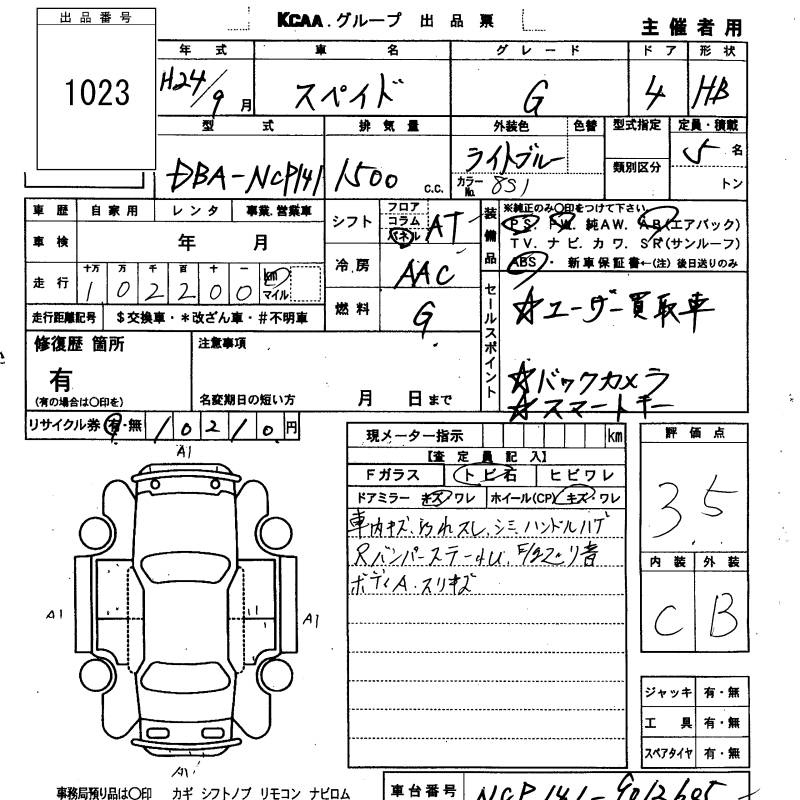 出品番号
1023
KCAA.グループ 出品票
主催者用
年式 車名 グレード ドア 形状
H24/9月 スペイド G 4 HB
型式 排気量 外装色 色替 型式指定 定員・積載
DBA-NCP141 1500 c.c. ライトブルー 5名
カラーNo. 8S1 類別区分 トン
車歴 自家用 レンタ 事業.営業車
シフト フロア コラム パネル AT
装備品 ※純正のみ〇印をつけて下さい
P.S. P.W. 純A.W. A.B(エアバック)
T.V. ナビ. カワ. S.R(サンルーフ)
ABS・ 新車保証書←(注)後日送りのみ
車検 年 月
冷房 AAC
走行 十万 万 千 百 十 一
102200 km マイル
燃料 G
走行距離記号 $交換車・*改ざん車・#不明車
セールスポイント
☆ユーザー買取車
☆バックカメラ
☆スマートキー
修復歴 箇所
有
(有の場合は〇印を)
注意事項
名変期日の短い方 月 日まで
リサイクル券 有・無 10210円
現メーター指示 km
評価点
3.5
【査定員記入】
Fガラス トビ石 ヒビワレ
ドアミラー キズ・ワレ ホイール(CP) キズ・ワレ
車内キズ.汚れスレ.シミ.ハンドルハゲ
ボディA.スリキズ
内装 外装
C B
A1
A1
A1
A1
ジャッキ 有・無
工具 有・無
スペアタイヤ 有・無
事務局預り品は〇印 カギ シフトノブ リモコン ナビロム
車台番号 NCP141-9012605